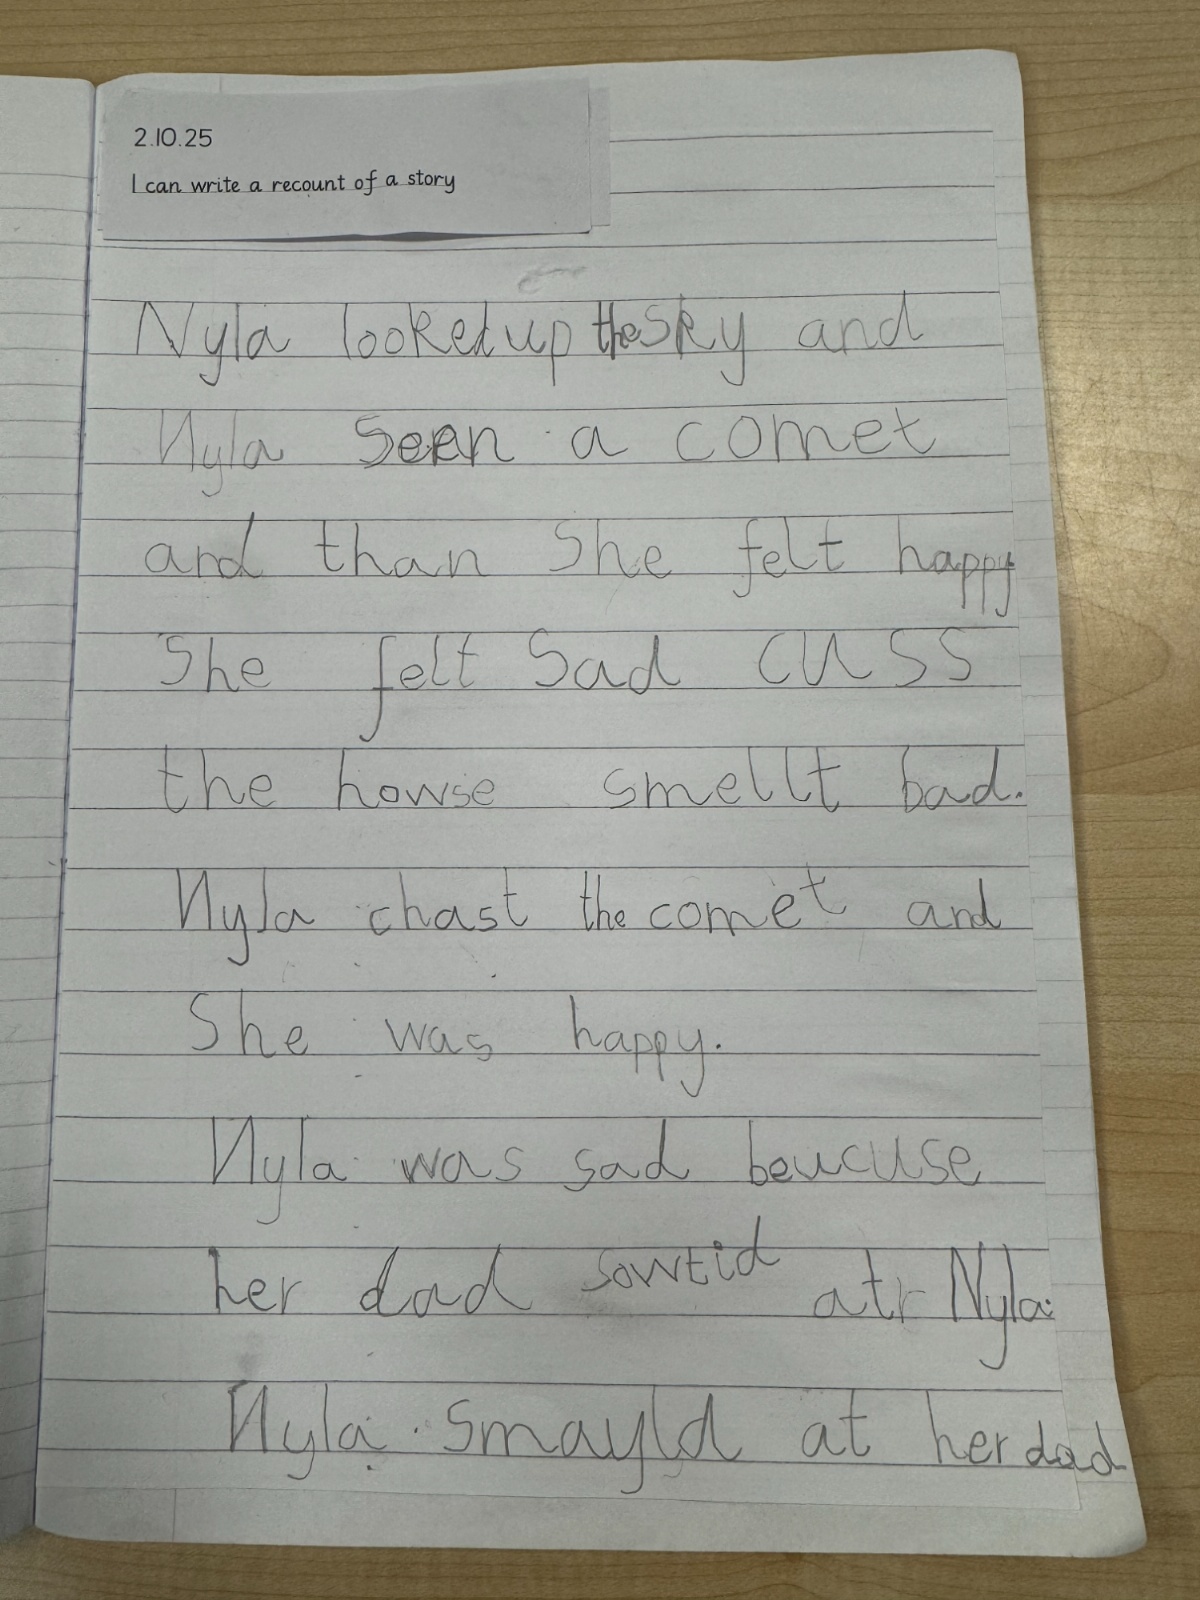 2.10.25
I can write a recount of a story
Nyla looked up the sky and
Nyla seen a comet
and than She felt happy
She felt Sad cuss
the howse smellt bad.
Nyla chast the comet and
She was happy.
Nyla was sad beucuse
her dad sowtid atr Nyla.
Nyla smayld at her dad